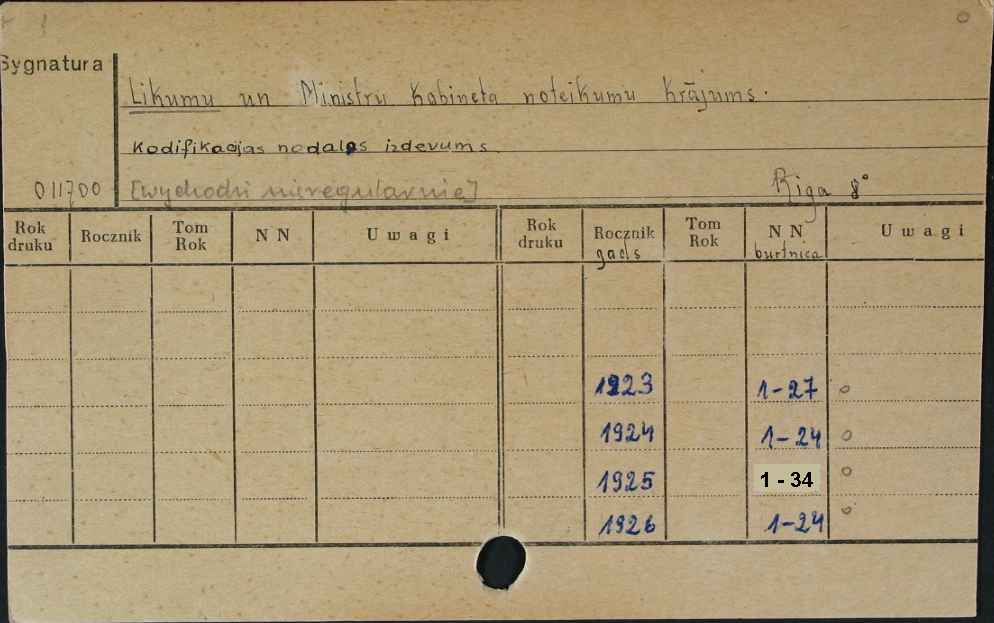 Sygnatura
Likumu un Ministru Kabineta noteikumu krājums.
Kodifikacijas nodaļas izdevums.
011700 [wychodzi nieregularnie] Riga 8°
Rok druku Rocznik Tom Rok NN Uwagi Rok druku Rocznik gads Tom Rok NN burtnica Uwagi
1923 1-27 o
1924 1-24 o
1925 1 - 34 o
1926 1-24 o